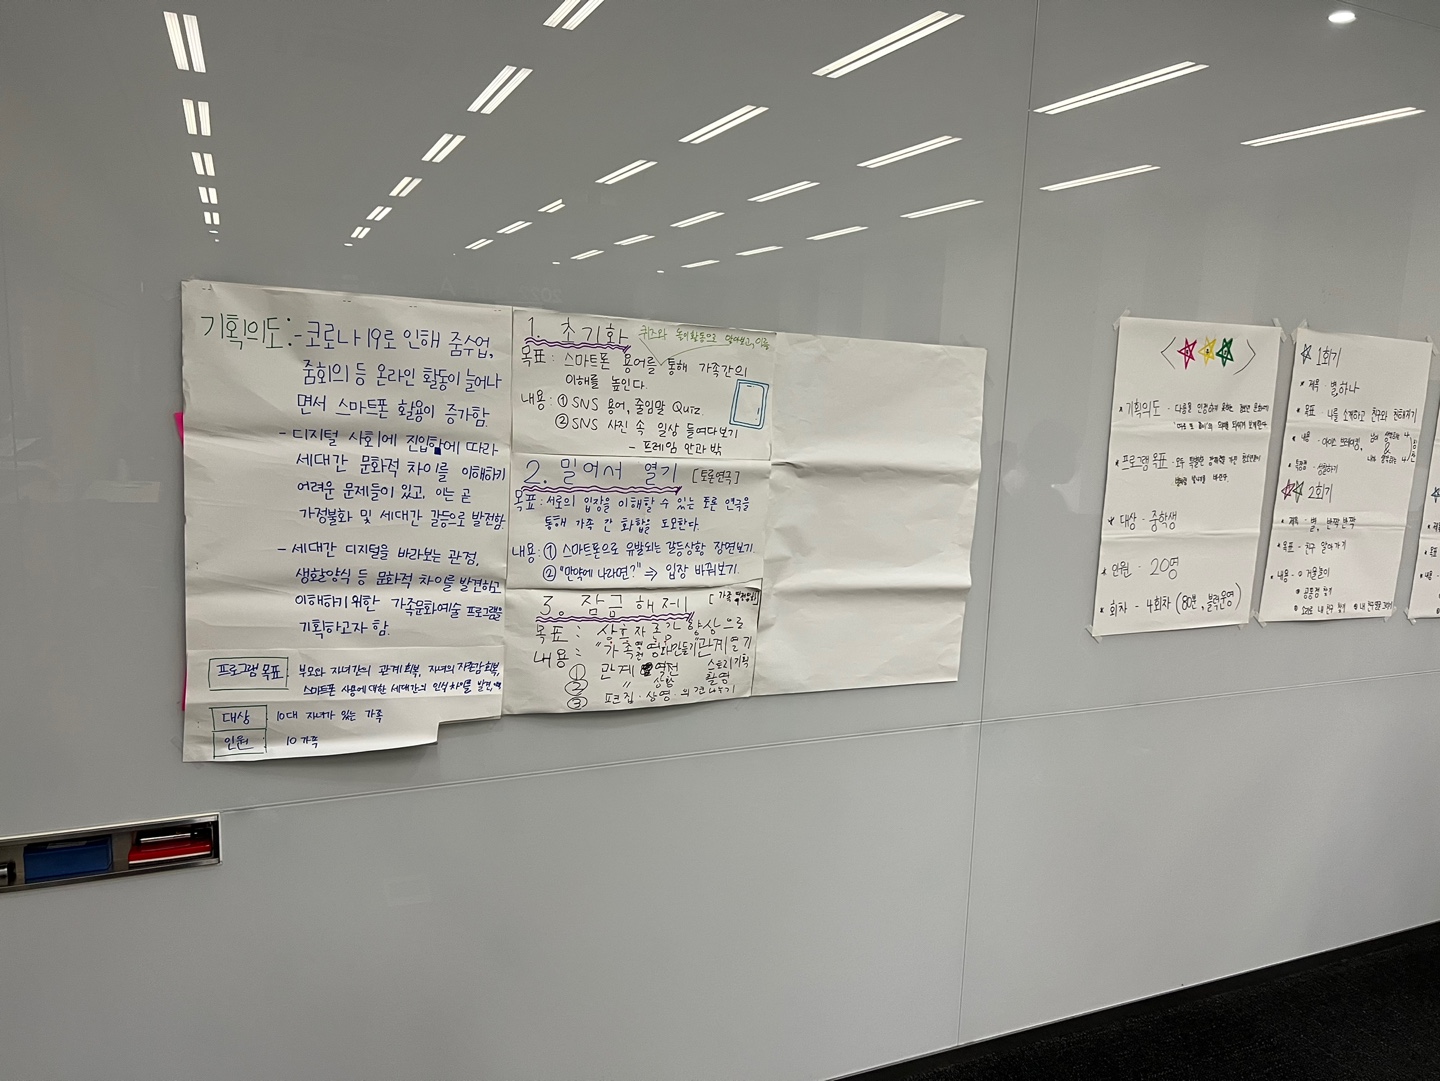 기획의도: - 코로나19로 인해 줌수업,
줌회의 등 온라인 활동이 늘어나
면서 스마트폰 활용이 증가함.
- 디지털 사회에 진입함에 따라
세대간 문화적 차이를 이해하기
어려운 문제들이 있고, 이는 곧
가정불화 및 세대간 갈등으로 발전함.
- 세대간 디지털을 바라보는 관점,
생활양식 등 문화적 차이를 발견하고
이해하기 위한 가족문화예술 프로그램을
기획하고자 함.
프로그램 목표 부모와 자녀간의 관계회복, 자녀의 자존감 회복,
스마트폰 사용에 대한 세대간의 인식 차이를 발견
대상 10대 자녀가 있는 가족
인원 10가족
1. 초기화 퀴즈와 놀이활동으로 알아보고
목표: 스마트폰 용어를 통해 가족간의
이해를 높인다.
내용: ① SNS 용어, 줄임말 Quiz.
② SNS 사진 속 일상 들여다보기
- 프레임 안과 밖
2. 밀어서 열기 [토론연극]
목표: 서로의 입장을 이해할 수 있는 토론 연극을
통해 가족 간 화합을 도모한다.
내용: ① 스마트폰으로 유발되는 갈등상황 장면보기.
② "만약에 나라면?" ⇒ 입장 바꿔보기.
3. 잠금 해제 [가족
목표: 상호자존감 향상으로
관계 열기
내용: "가족 영화만들기"
① 관계 스토리 기획
② 〃 촬영
③ 편집·상영·의견나누기
기획의도 -
프로그램 목표 -
대상 - 중학생
인원 - 20명
회차 - 4회차 (80분,
1회기
제목 - 별, 하나
목표 - 나를 소개하고 친구와 친해지기
내용 - 아이스 브레이킹,
2회기
제목 - 별, 반짝반짝
목표 - 친구 알아가기
내용 - ① 거울놀이
② 공통점 찾기